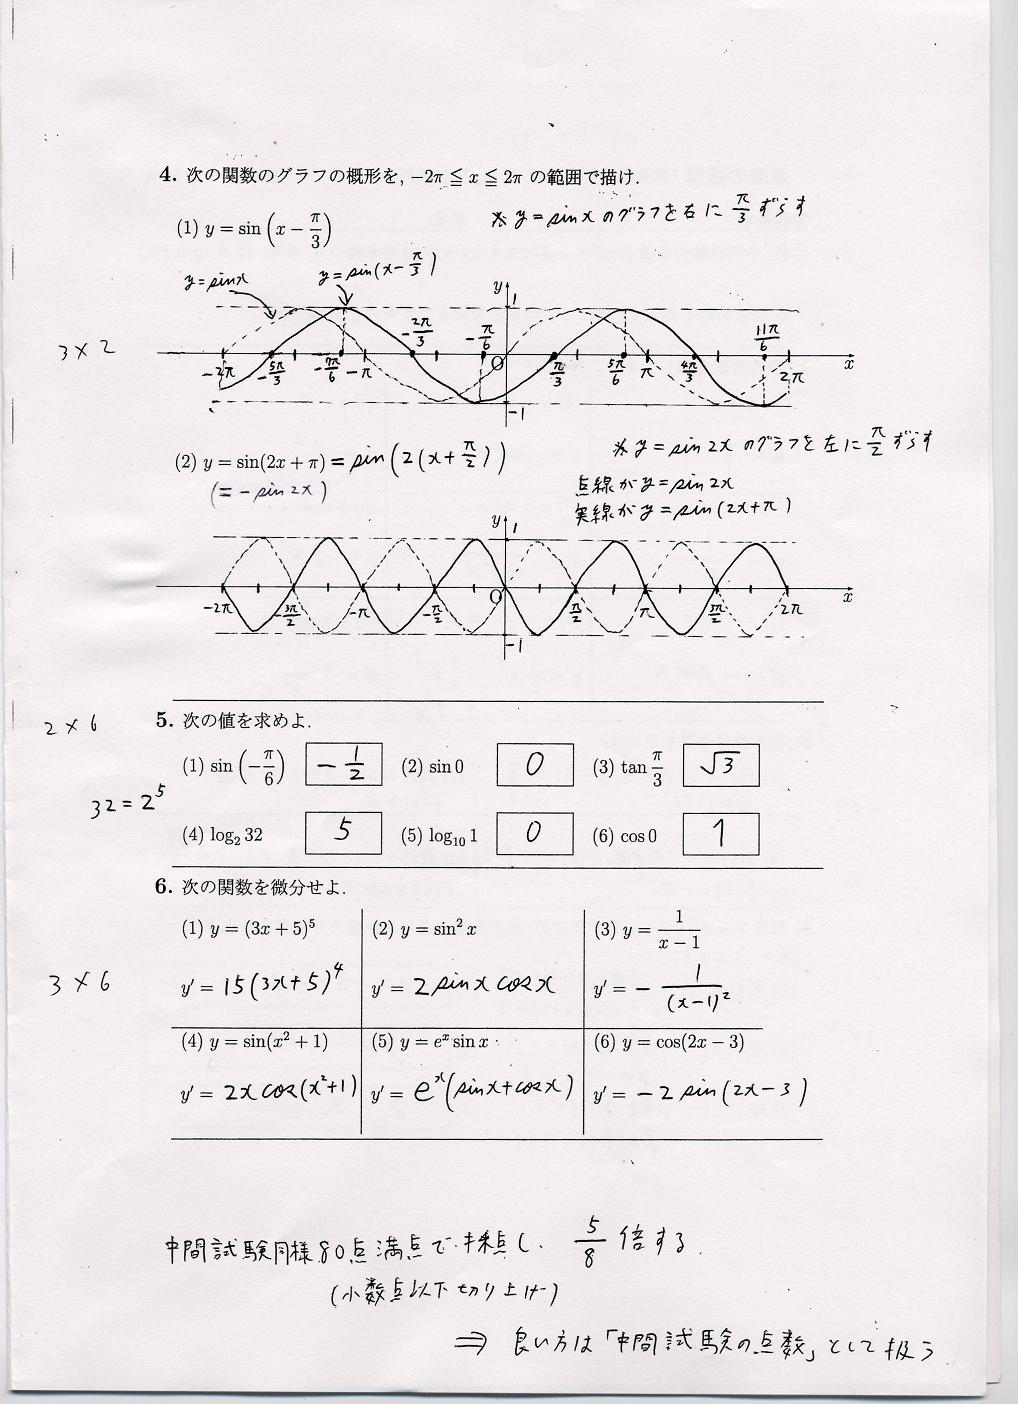 4. 次の関数のグラフの概形を, −2π ≦ x ≦ 2π の範囲で描け.
(1) y = sin(x − π/3)
※ y = sin x のグラフを右に π/3 ずらす
y = sin x
y = sin(x − π/3)
3 × 2
y
1
−2π −5π/3 −7π/6 −π −2π/3 −π/6 O π/3 5π/6 π 4π/3 11π/6 2π x
−1
(2) y = sin(2x + π) = sin(2(x + π/2))
(= − sin 2x)
※ y = sin 2x のグラフを左に π/2 ずらす
点線が y = sin 2x
実線が y = sin(2x + π)
y
1
−2π −3π/2 −π −π/2 O π/2 π 3π/2 2π x
−1
2 × 6
5. 次の値を求めよ.
(1) sin(−π/6) −1/2 (2) sin 0 0 (3) tan π/3 √3
32 = 2⁵
(4) log₂ 32 5 (5) log₁₀ 1 0 (6) cos 0 1
6. 次の関数を微分せよ.
(1) y = (3x + 5)⁵ (2) y = sin² x (3) y = 1/(x − 1)
3 × 6
y′ = 15(3x + 5)⁴ y′ = 2 sin x cos x y′ = − 1/(x − 1)²
(4) y = sin(x² + 1) (5) y = eˣ sin x (6) y = cos(2x − 3)
y′ = 2x cos(x² + 1) y′ = eˣ(sin x + cos x) y′ = −2 sin(2x − 3)
中間試験同様80点満点で採点し、5/8 倍する.
(小数点以下切り上げ)
⇒ 良い方は「中間試験の点数」として扱う